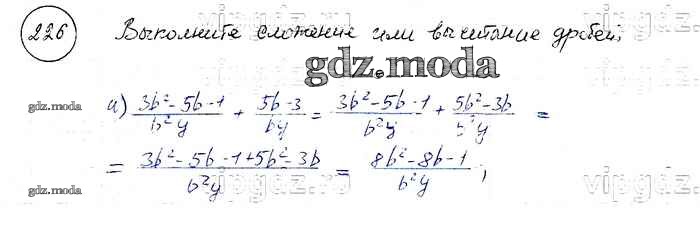 226 Выполните сложение или вычитание дробей;
gdz.moda
gdz.moda а) (3b²-5b-1)/(b²y) + (5b-3)/(by) = (3b²-5b-1)/(b²y) + (5b²-3b)/(b²y) =
= (3b²-5b-1+5b²-3b)/(b²y) = (8b²-8b-1)/(b²y);
gdz.moda
vipgdz.ru